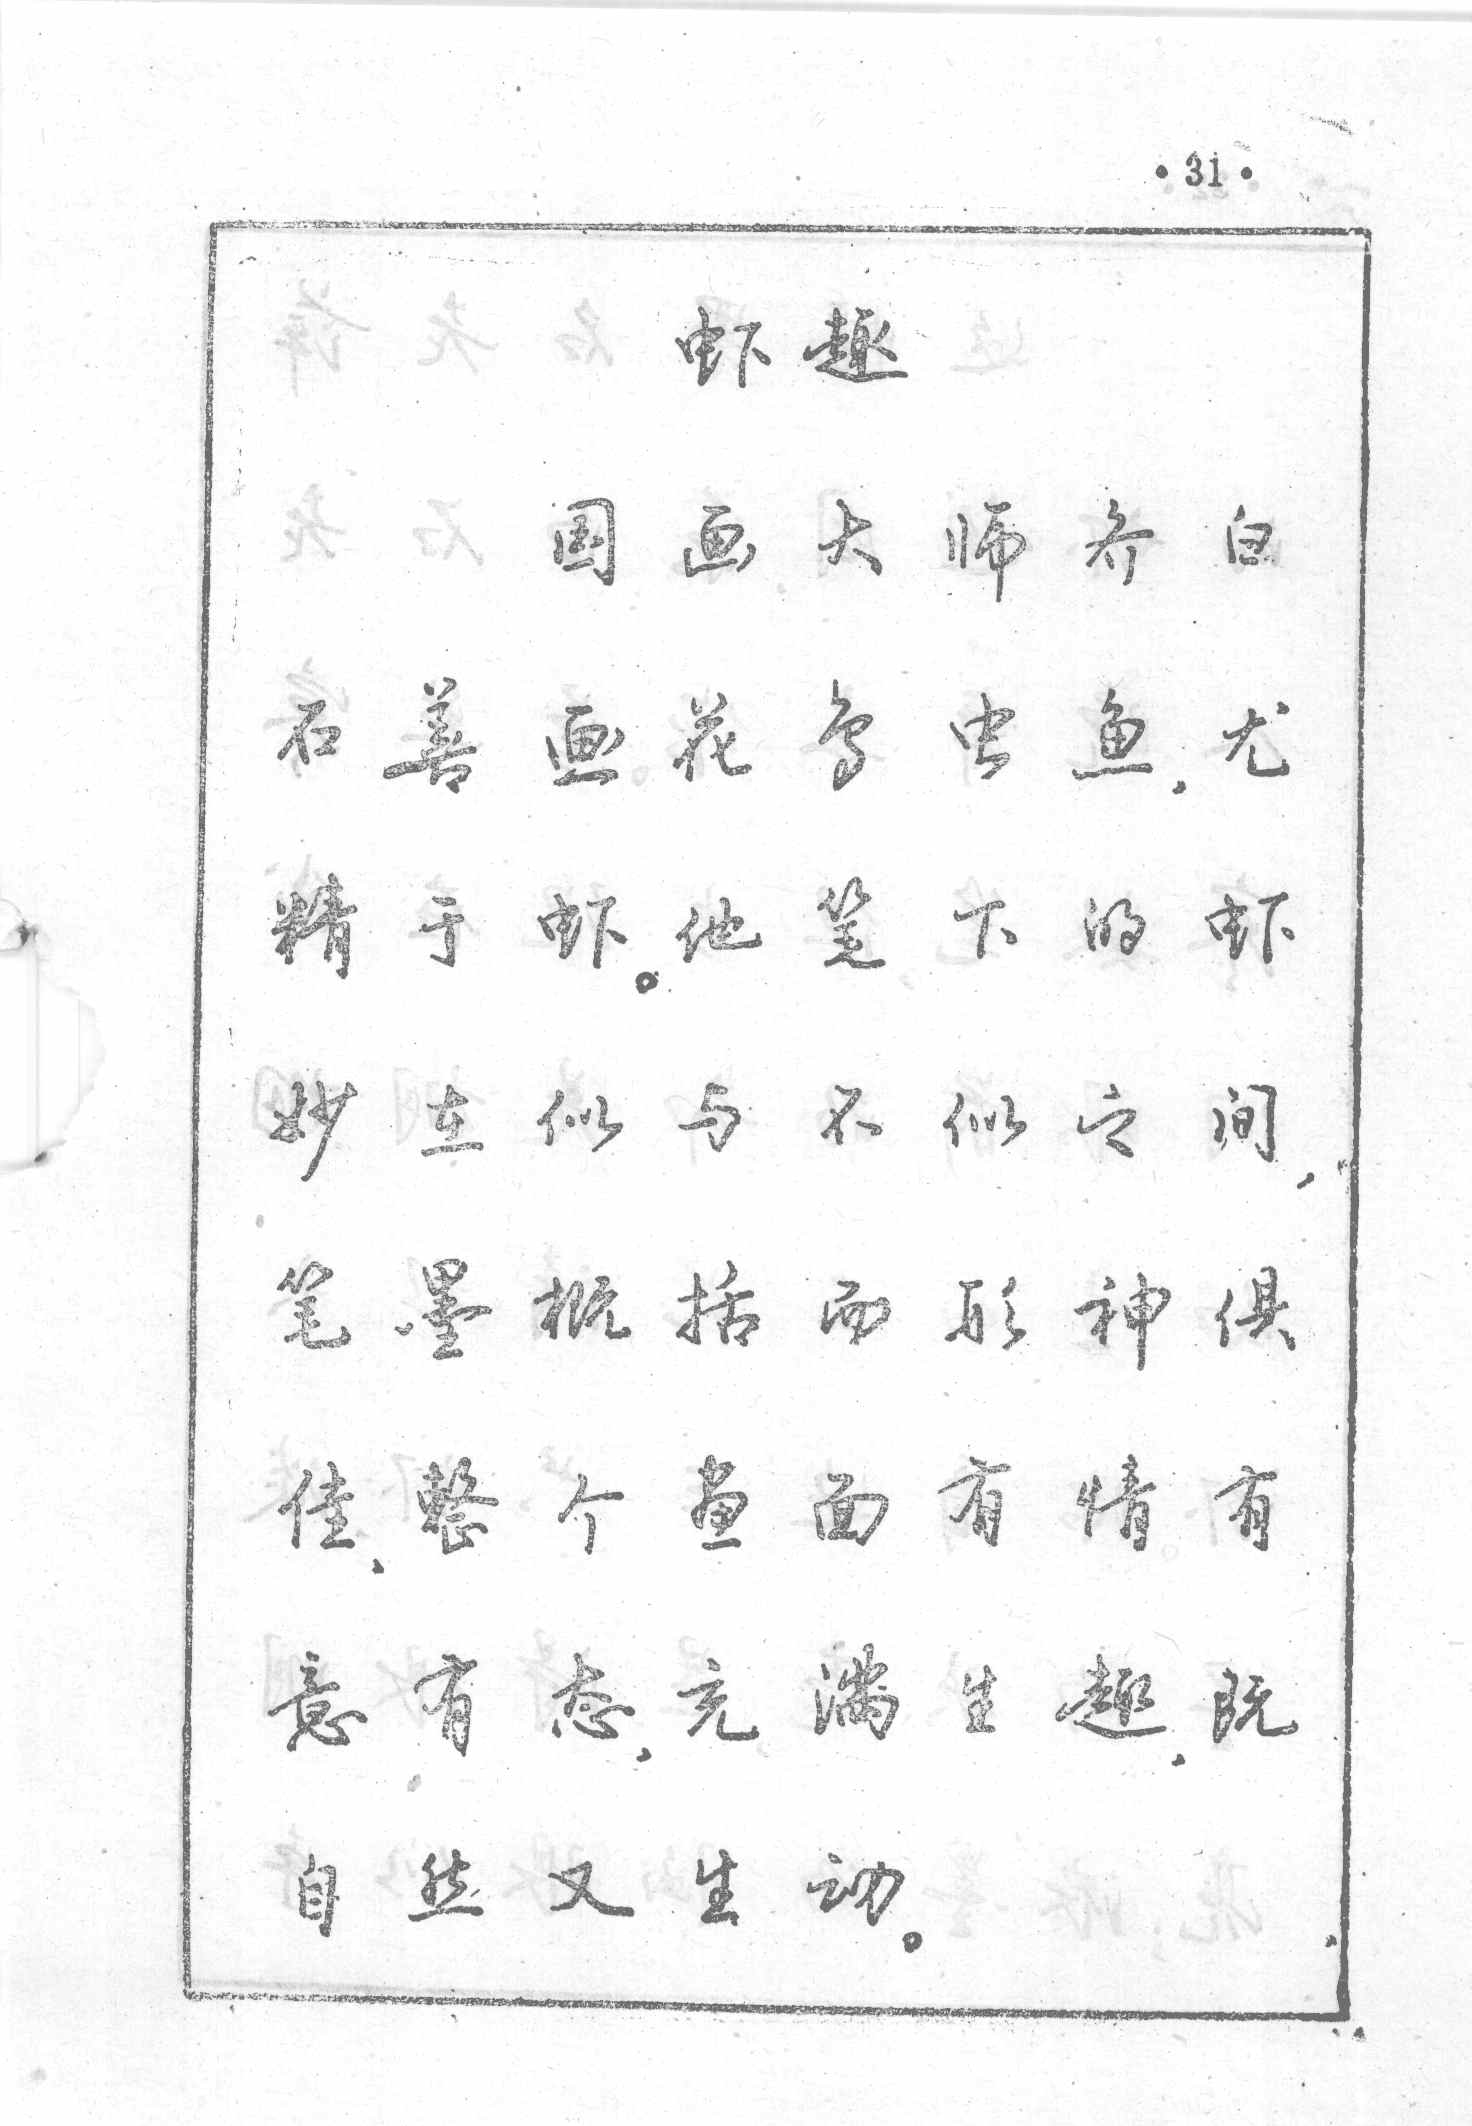 ·31·
虾趣
国画大师齐白
石善画花鸟虫鱼,尤
精于虾。他笔下的虾
妙在似与不似之间,
笔墨概括而形神俱
佳,整个画面有情有
意有态,充满生趣,既
自然又生动。